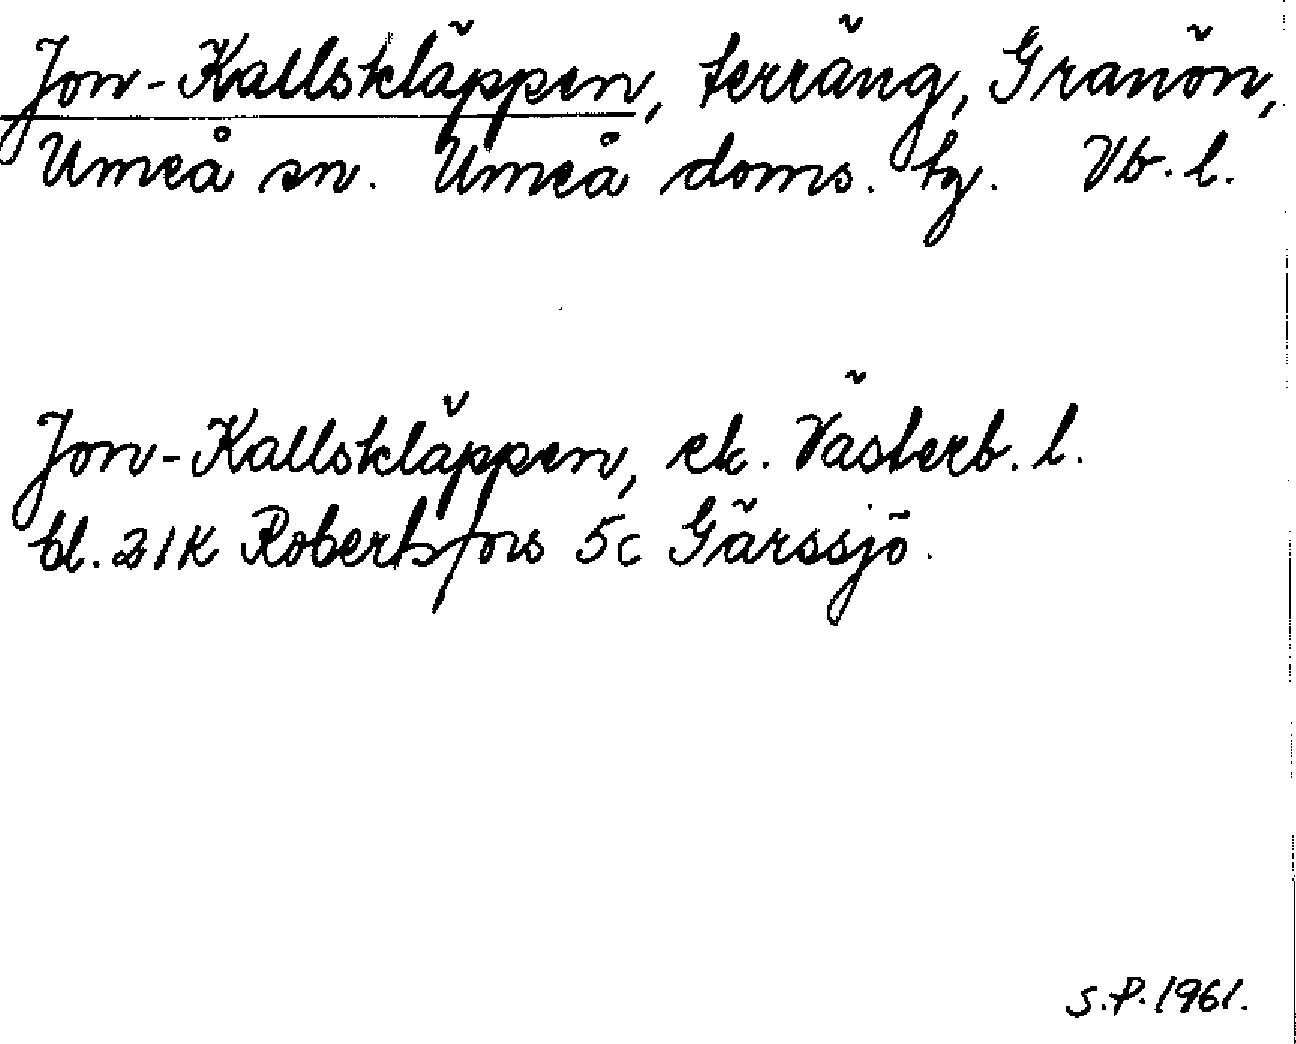 Jon-Kallskläppen, terräng, Granön,
Umeå sn. Umeå doms. tg. Vb. l.
Jon-Kallskläppen, ek. Västerb. l.
bl. 21K Robertsfors 5c Gärssjö.
S.P. 1961.